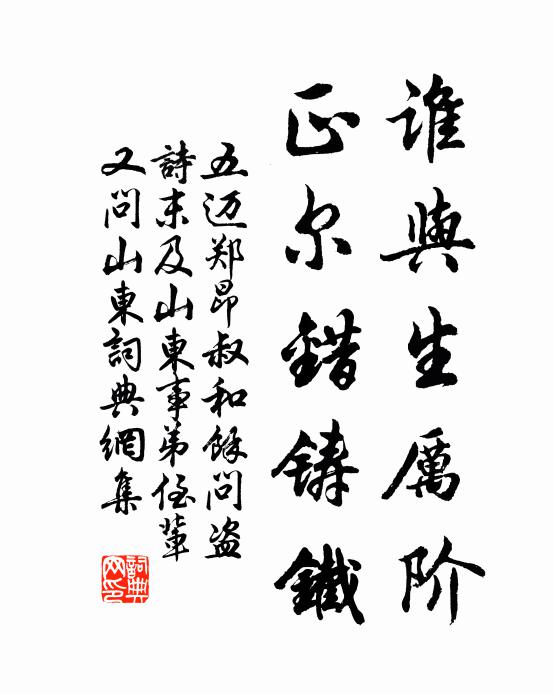 谁與生厲阶
正尔錯鑄鐵
五迈郑昂叔和餘問盗
詩末及山東事弟侄輩
又問山東詞典網集
詞典
网印